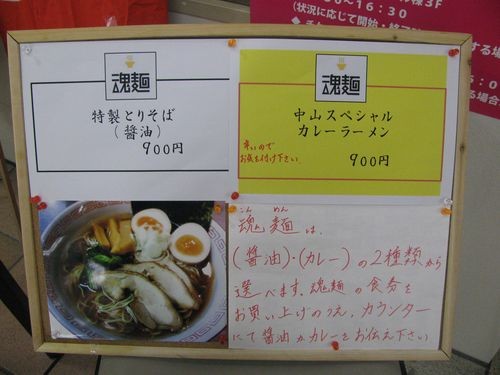 3F
～16:30
(状況に応じて開始・終了
魂麺
特製とりそば
(醤油)
900円
魂麺
中山スペシャル
カレーラーメン
辛いので
お気を付け下さい
900円
こん めん
魂麺は、
(醤油)・(カレー)の2種類から
選べます。魂麺の食券を
お買い上げのうえ、カウンター
にて醤油かカレーをお伝え下さい
する場
る場合